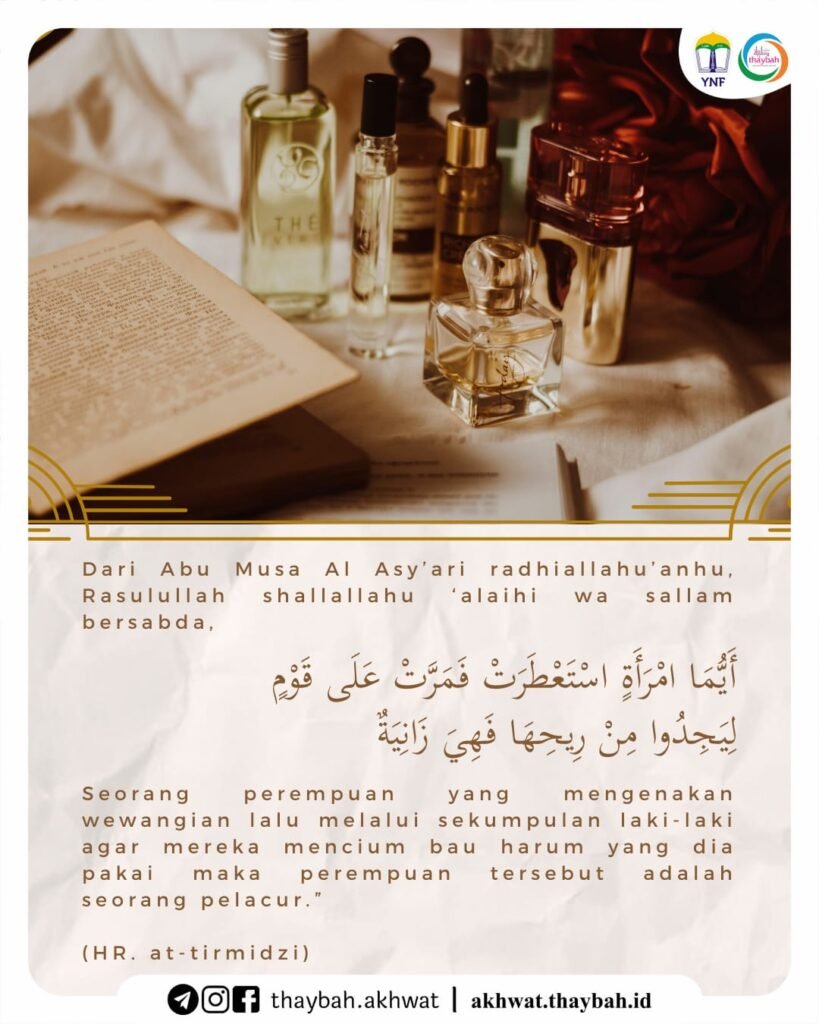 YNF
thaybah
THÉ
Dari Abu Musa Al Asy’ari radhiallahu’anhu,
Rasulullah shallallahu ‘alaihi wa sallam
bersabda,
أَيُّمَا امْرَأَةٍ اسْتَعْطَرَتْ فَمَرَّتْ عَلَى قَوْمٍ
لِيَجِدُوا مِنْ رِيحِهَا فَهِيَ زَانِيَةٌ
Seorang perempuan yang mengenakan
wewangian lalu melalui sekumpulan laki-laki
agar mereka mencium bau harum yang dia
pakai maka perempuan tersebut adalah
seorang pelacur.”
(HR. at-tirmidzi)
thaybah.akhwat | akhwat.thaybah.id